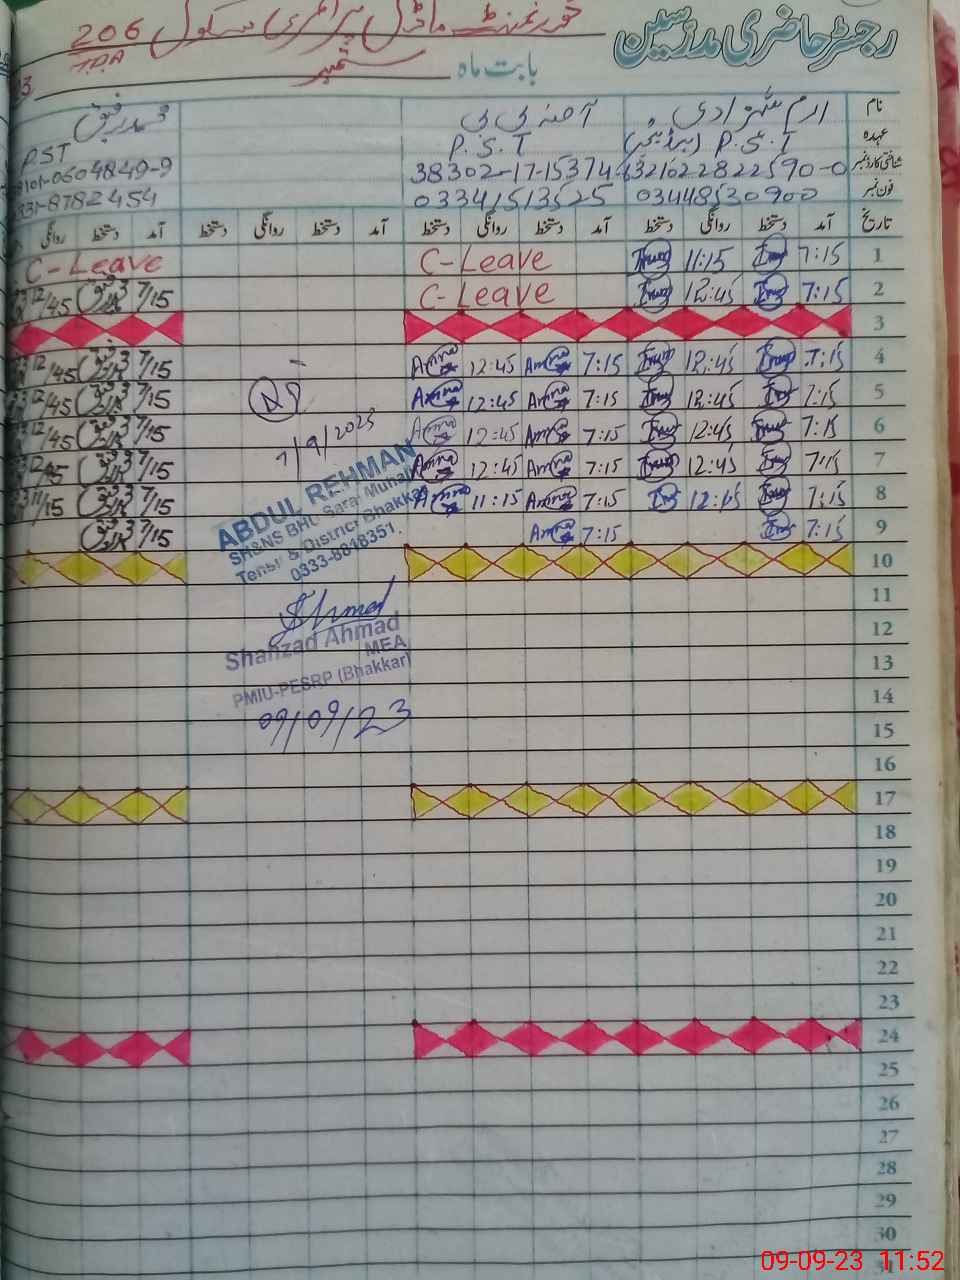 رجسٹر حاضری مدرسین
گورنمنٹ ماڈل پرائمری سکول 206
T.D.A
بابت ماہ ستمبر
نام ارم شہزادی آمنہ بی بی محمد رفیق
عہدہ P.S.T (ہیڈ ٹیچر) P.S.T PST
شناختی کارڈ نمبر
فون نمبر 03448530900 03341513525
تاریخ آمد دستخط روانگی دستخط آمد دستخط روانگی دستخط آمد دستخط روانگی دستخط آمد دستخط روانگی
1 7:15 11:15 C-Leave C-Leave
2 7:15 12:45 C-Leave 7/15 12/45
3
4 7:15 12:45 7:15 Amna 12:45 Amna 7/15 12/45
5 7:15 12:45 7:15 Amna 12:45 Amna 7/15 12/45
6 7:15 12:45 7:15 Amna 12:45 Amna 7/15 12/45
7 7:15 12:45 7:15 Amna 12:45 Amna 7/15 12/45
8 7:15 12:45 7:15 Amna 11:15 Amna 7/15 11/15
9 7:15 7:15 Amna 7/15
10
11
12
13
14
15
16
17
18
19
20
21
22
23
24
25
26
27
28
29
30
31
7/9/2023
ABDUL REHMAN
SH&NS BHU Sarai Muhajir
Tehsil & District Bhakkar
0333-8818351.
Ahmad
Shahzad Ahmad
MEA
PMIU-PESRP (Bhakkar)
09/09/23
09-09-23 11:52